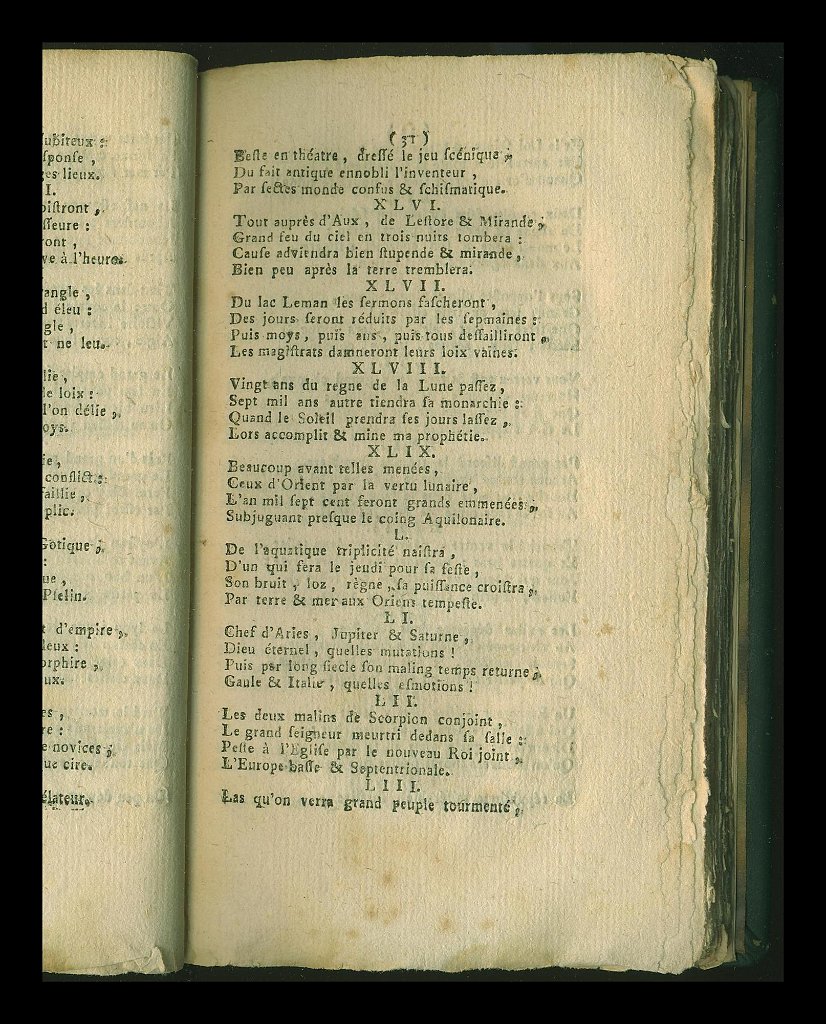 ſubiteux :
ſponſe ,
ges lieux.
I.
oiſtront ,
ſſeure :
ront ,
ve à l'heure.
rangle ,
d éleu :
gle ,
t ne leu.
lie ,
le loix :
l'on délie ,
oys.
ie ,
conflict :
faillie ,
plic.
Gotique ;
:
ue ,
Pſelin.
t d'empire ,
leux :
orphire ,
ux.
es ,
re :
e novices ;
ue cire.
élateur.
( 31 )
Beſte en théatre , dreſſé le jeu ſcénique ;
Du fait antique ennobli l'inventeur ,
Par ſectes monde confus & ſchiſmatique.
XLVI.
Tout auprès d'Aux , de Leſtore & Mirande ;
Grand feu du ciel en trois nuits tombera :
Cauſe adviendra bien ſtupende & mirande ,
Bien peu après la terre tremblera.
XLVII.
Du lac Leman les ſermons faſcheront ,
Des jours ſeront réduits par les ſepmaines :
Puis moys , puis ans , puis tous deſſailliront ,
Les magiſtrats damneront leurs loix vaines.
XLVIII.
Vingt ans du regne de la Lune paſſez ,
Sept mil ans autre tiendra ſa monarchie :
Quand le Soleil prendra ſes jours laſſez ,
Lors accomplit & mine ma prophétie.
XLIX.
Beaucoup avant telles menées ,
Ceux d'Orient par la vertu lunaire ,
L'an mil ſept cent feront grands emmenées ;
Subjuguant preſque le coing Aquilonaire.
L.
De l'aquatique triplicité naiſtra ,
D'un qui fera le jeudi pour ſa feſte ,
Son bruit , loz , règne , ſa puiſſance croiſtra ,
Par terre & mer aux Oriens tempeſte.
LI.
Chef d'Aries , Jupiter & Saturne ,
Dieu éternel , quelles mutations !
Puis par long ſiecle ſon maling temps returne ;
Gaule & Italie , quelles eſmotions !
LII.
Les deux malins de Scorpion conjoint ,
Le grand ſeigneur meurtri dedans ſa ſalle :
Peſte à l'Egliſe par le nouveau Roi joint ,
L'Europe baſſe & Septentrionale.
LIII.
Las qu'on verra grand peuple tourmenté ,